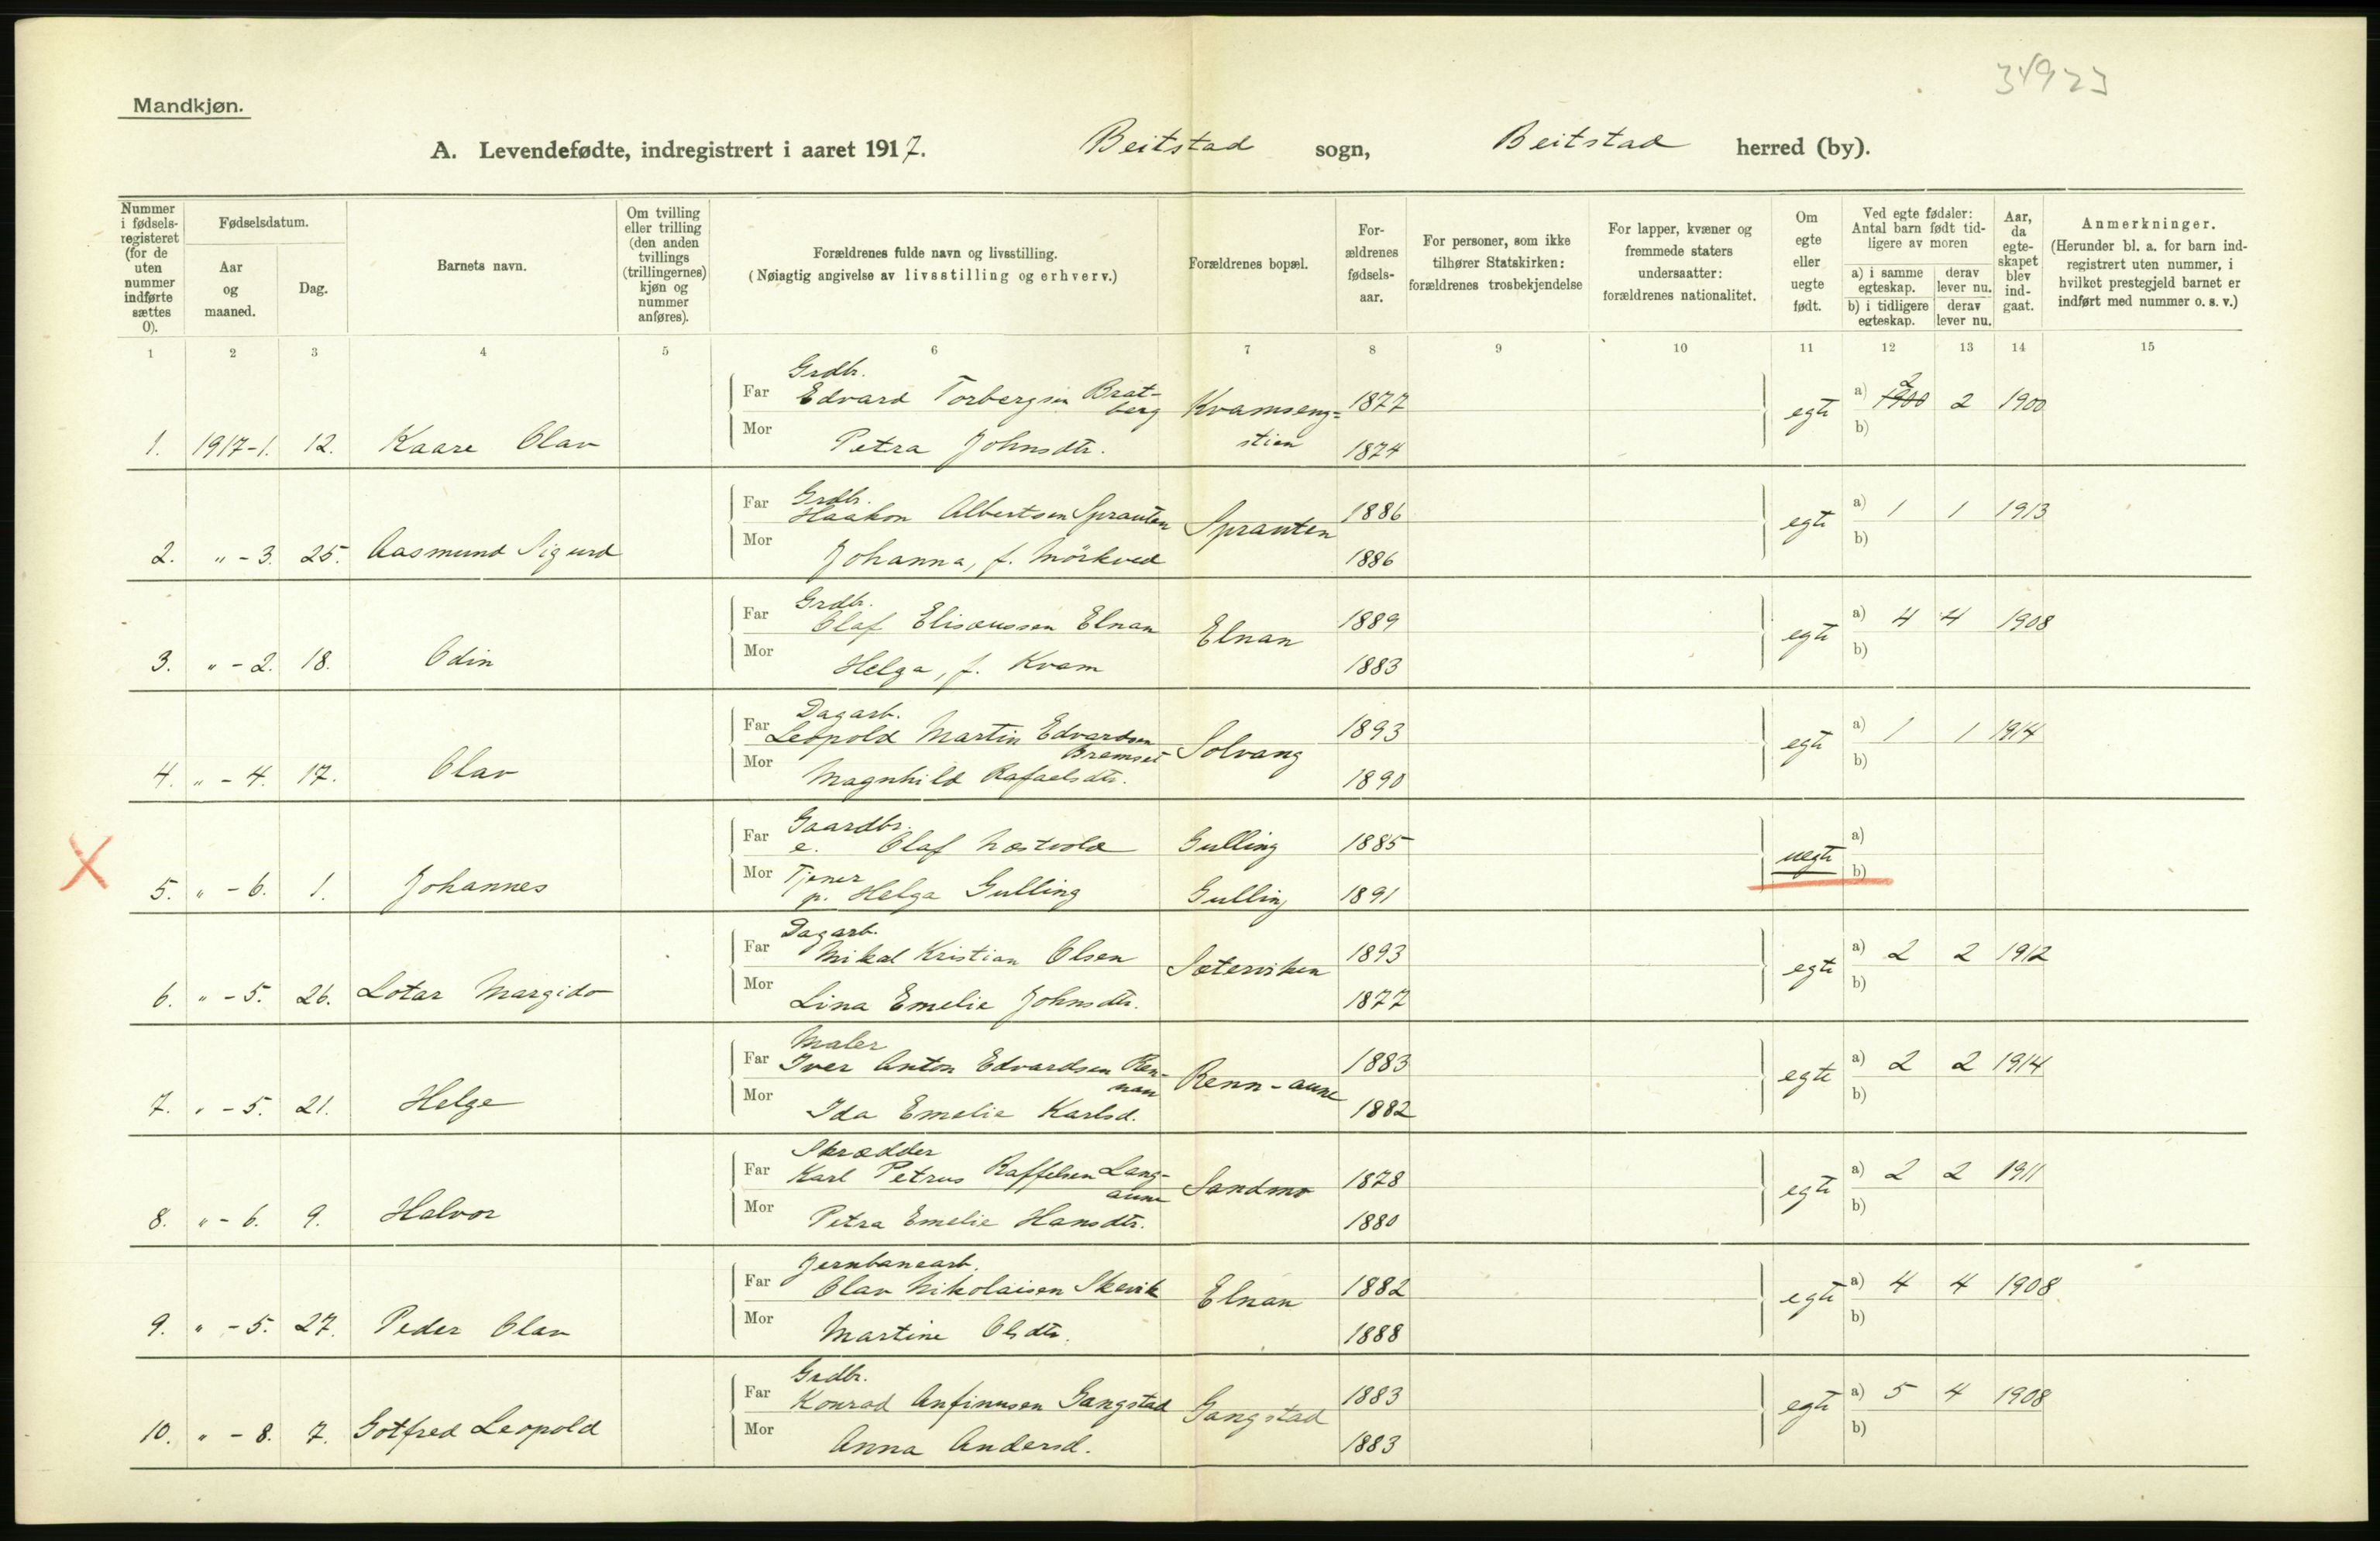 34923
Mandkjøn.
A. Levendefødte, indregistrert i aaret 1917. Beitstad sogn, Beitstad herred (by).
Nummer i fødselsregisteret (for de uten nummer indførte sættes 0).
Fødselsdatum.
Aar og maaned.
Dag.
Barnets navn.
Om tvilling eller trilling (den anden tvillings (trillingernes) kjøn og nummer anføres).
Forældrenes fulde navn og livsstilling.
(Nøiagtig angivelse av livsstilling og erhverv.)
Forældrenes bopæl.
Forældrenes fødselsaar.
For personer, som ikke tilhører Statskirken: forældrenes trosbekjendelse
For lapper, kvæner og fremmede staters undersaatter: forældrenes nationalitet.
Om egte eller uegte født.
Ved egte fødsler: Antal barn født tidligere av moren
a) i samme egteskap. derav lever nu.
b) i tidligere egteskap. derav lever nu.
Aar, da egteskapet blev indgaat.
Anmerkninger.
(Herunder bl. a. for barn indregistrert uten nummer, i hvilket prestegjeld barnet er indført med nummer o. s. v.)
1 2 3 4 5 6 7 8 9 10 11 12 13 14 15
Grdbr.
Far Edvard Torbergsen Bratberg Kvamsengstien 1877 egte a) 1900 2 2 1900
1. 1917-1. 12. Kaare Olav Mor Petra Johnsdtr. 1874 b)
Grdbr.
Far Haakon Albertsen Sprauten Sprauten 1886 egte a) 1 1 1913
2. " - 3. 25. Aasmund Sigurd Mor Johanna, f. Mörkved 1886 b)
Grdbr.
Far Olaf Elisæussen Elnan Elnan 1889 egte a) 4 4 1908
3. " - 2. 18. Odin Mor Helga, f. Kvam 1883 b)
Dagarb.
Far Leopold Martin Edvardsen Bremset Solvang 1893 egte a) 1 1 1914
4. " - 4. 17. Olav Mor Magnhild Rafaelsdtr. 1890 b)
Gaardbr.
Far e. Olaf Næstvold Gulling 1885 uegte a)
5. " - 6. 1. Johannes Mor Tjener p. Helga Gulling Gulling 1891 b)
Dagarb.
Far Mikal Kristian Olsen Sæterviken 1893 egte a) 2 2 1912
6. " - 5. 26. Lotar Margido Mor Lina Emelie Johnsdtr. 1877 b)
Maler
Far Iver Anton Edvardsen Rennan Renn-aune 1883 egte a) 2 2 1914
7. " - 5. 21. Helge Mor Ida Emelie Karlsd. 1882 b)
Skrædder
Far Karl Petrus Raffelsen Langaune Sandmo 1878 egte a) 2 2 1911
8. " - 6. 9. Halvor Mor Petra Emelie Hansdtr. 1880 b)
Jernbanearb.
Far Olav Nikolaisen Skevik Elnan 1882 egte a) 4 4 1908
9. " - 5. 27. Peder Olav Mor Martine Olsdtr. 1888 b)
Grdbr.
Far Konrad Anfinnsen Gangstad Gangstad 1883 egte a) 5 4 1908
10. " - 8. 7. Gotfred Leopold Mor Anna Andersd. 1883 b)